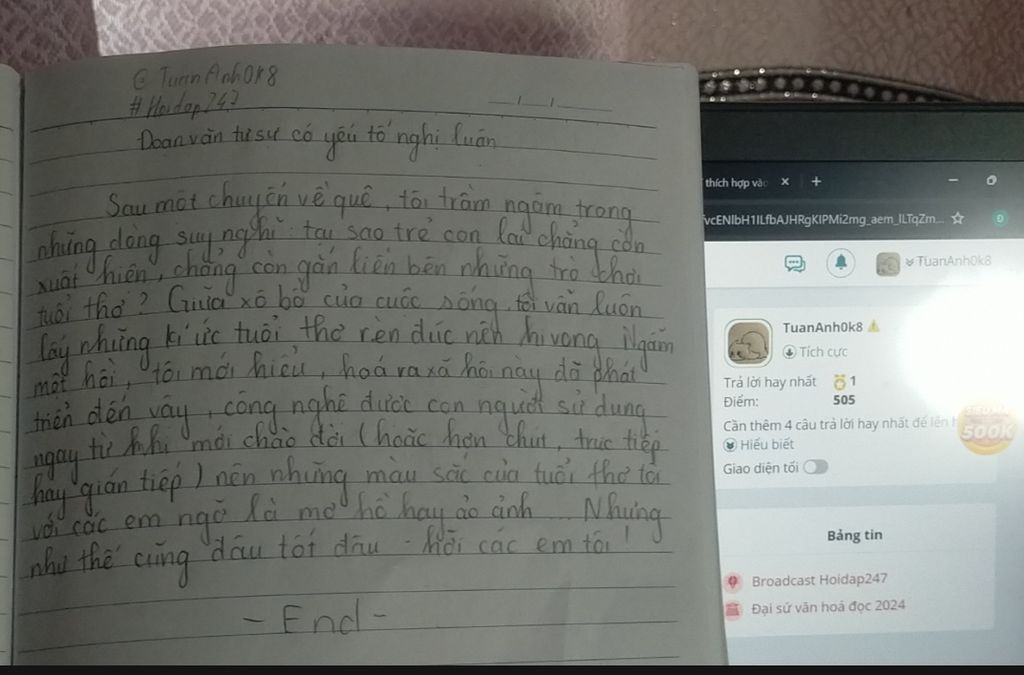 @ TuanAnh0k8
#Hoidap247
Đoạn văn tự sự có yếu tố nghị luận
Sau một chuyến về quê, tôi trầm ngâm trong
những dòng suy nghĩ: tại sao trẻ con lại chẳng còn
xuất hiện, chẳng còn gắn liền bên những trò chơi
tuổi thơ? Giữa xô bồ của cuộc sống, tôi vẫn luôn
lấy những kí ức tuổi thơ rèn đúc nên hi vọng. Ngẫm
một hồi, tôi mới hiểu, hoá ra xã hội này đã phát
triển đến vậy, công nghệ được con người sử dụng
ngay từ khi mới chào đời (hoặc hơn chút, trực tiếp
hay gián tiếp) nên những màu sắc của tuổi thơ tôi
với các em ngỡ là mơ hồ hay ảo ảnh... Nhưng
như thế cũng đâu tốt đâu - hỡi các em tôi!
- End -
thích hợp vào
vcENlbH1ILfbAJHRgKIPMi2mg_aem_ILTqZm...
TuanAnh0k8
TuanAnh0k8
Tích cực
Trả lời hay nhất 1
Điểm: 505
Cần thêm 4 câu trả lời hay nhất để lên
Hiểu biết
Giao diện tối
500K
Bảng tin
Broadcast Hoidap247
Đại sứ văn hoá đọc 2024